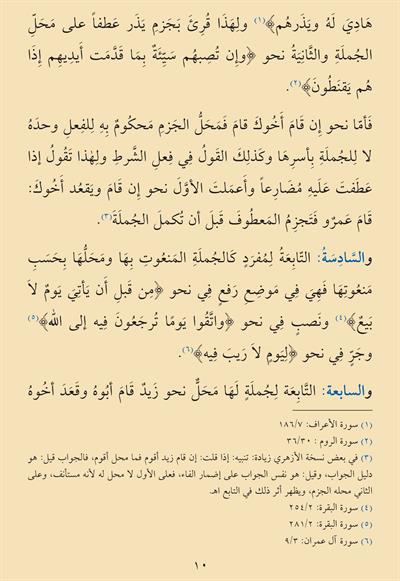 هَادِيَ لَهُ ويَذَرهُم﴾(١) ولِهَذَا قُرِئَ بَجَزمِ يَذَر عَطفاً على مَحَلِّ
الجُملَةِ والثَّانِيَةُ نحو ﴿وإِن تُصِبهُم سَيِّئَةٌ بِمَا قَدَّمَت أَيدِيهِم إِذَا
هُم يَقنَطُونَ﴾(٢).
فَأمّا نحو إِن قَامَ أَخُوكَ قامَ فَمَحَلُّ الجَزمِ مَحكُومٌ بِهِ لِلفِعلِ وحدَهُ
لا لِلجُملَةِ بِأَسرِهَا وكَذلِكَ القَولُ فِي فِعلِ الشَّرطِ ولِهٰذا تَقُولُ إذا
عَطَفتَ عَلَيهِ مُضَارِعاً وأَعمَلتَ الأَوَّلَ نحو إِن قَامَ ويَقعُد أَخُوكَ:
قَامَ عَمرٌو فَتَجزِمُ المَعطُوفَ قَبلَ أَن تُكمِلَ الجُملَةَ(٣).
والسَّادِسَةُ: التَّابِعَةُ لِمُفرَدٍ كَالجُملَةِ المَنعُوتِ بِهَا ومَحَلُّهَا بِحَسَبِ
مَنعُوتِهَا فَهِيَ فِي مَوضِعِ رَفعٍ فِي نحو ﴿مِن قَبلِ أَن يَأتِيَ يَومٌ لاَ
بَيعٌ﴾(٤) ونَصبٍ فِي نحو ﴿واتَّقُوا يَومًا تُرجَعُونَ فِيه إلى الله﴾(٥)
وجَرٍّ فِي نحو ﴿لِيَومٍ لاَ رَيبَ فِيه﴾(٦).
والسابعة: التَّابِعَة لِجُملَةٍ لَهَا مَحَلٌّ نحو زَيدٌ قَامَ أَبُوهُ وقَعَدَ أخُوهُ
(١) سورة الأعراف: ١٨٦/٧
(٢) سورة الروم : ٣٦/٣٠
(٣) في بعض نسخة الأزهري زيادة: تنبيه: إذا قلت: إن قام زيد أقوم فما محل أقوم، فالجواب قيل: هو
دليل الجواب، وقيل: هو نفس الجواب على إضمار الفاء، فعلى الأول لا محل له لأنه مستأنف، وعلى
الثاني محله الجزم، ويظهر أثر ذلك في التابع اهـ
(٤) سورة البقرة: ٢٥٤/٢
(٥) سورة البقرة: ٢٨١/٢
(٦) سورة آل عمران: ٩/٣
١٠